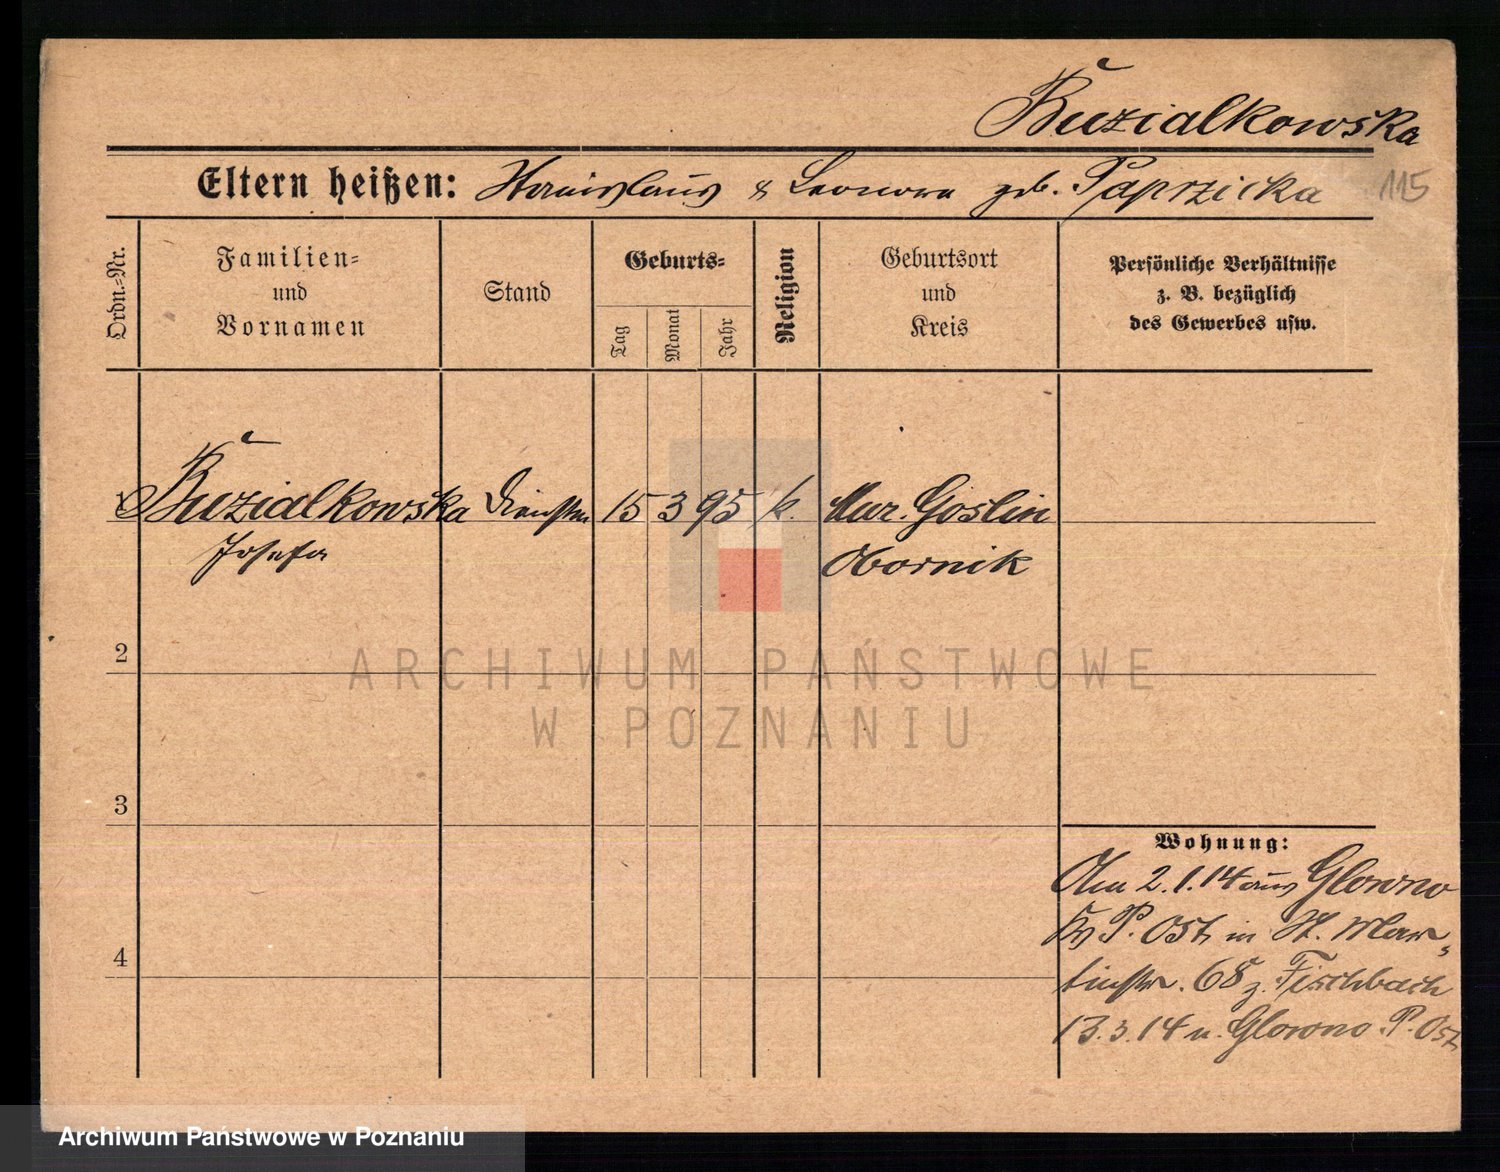 Buzialkowska
Eltern heißen: Stanislaus & Leonora geb. Paprzicka 115
Ordn.-Nr.
Familien-
und
Vornamen
Stand
Geburts-
Tag
Monat
Jahr
Religion
Geburtsort
und
Kreis
Persönliche Verhältnisse
z. B. bezüglich
des Gewerbes usw.
Buzialkowska 15 3 95 k. Mur. Goslin
Josefa Obornik
2
3
4
Wohnung:
Am 2.1.14 aus Glowno
Kr P. Ost in St. Mar-
tinstr. 68 z. Fischbach
13.3.14 n. Glowno P. Ost
ARCHIWUM PAŃSTWOWE
W POZNANIU
Archiwum Państwowe w Poznaniu